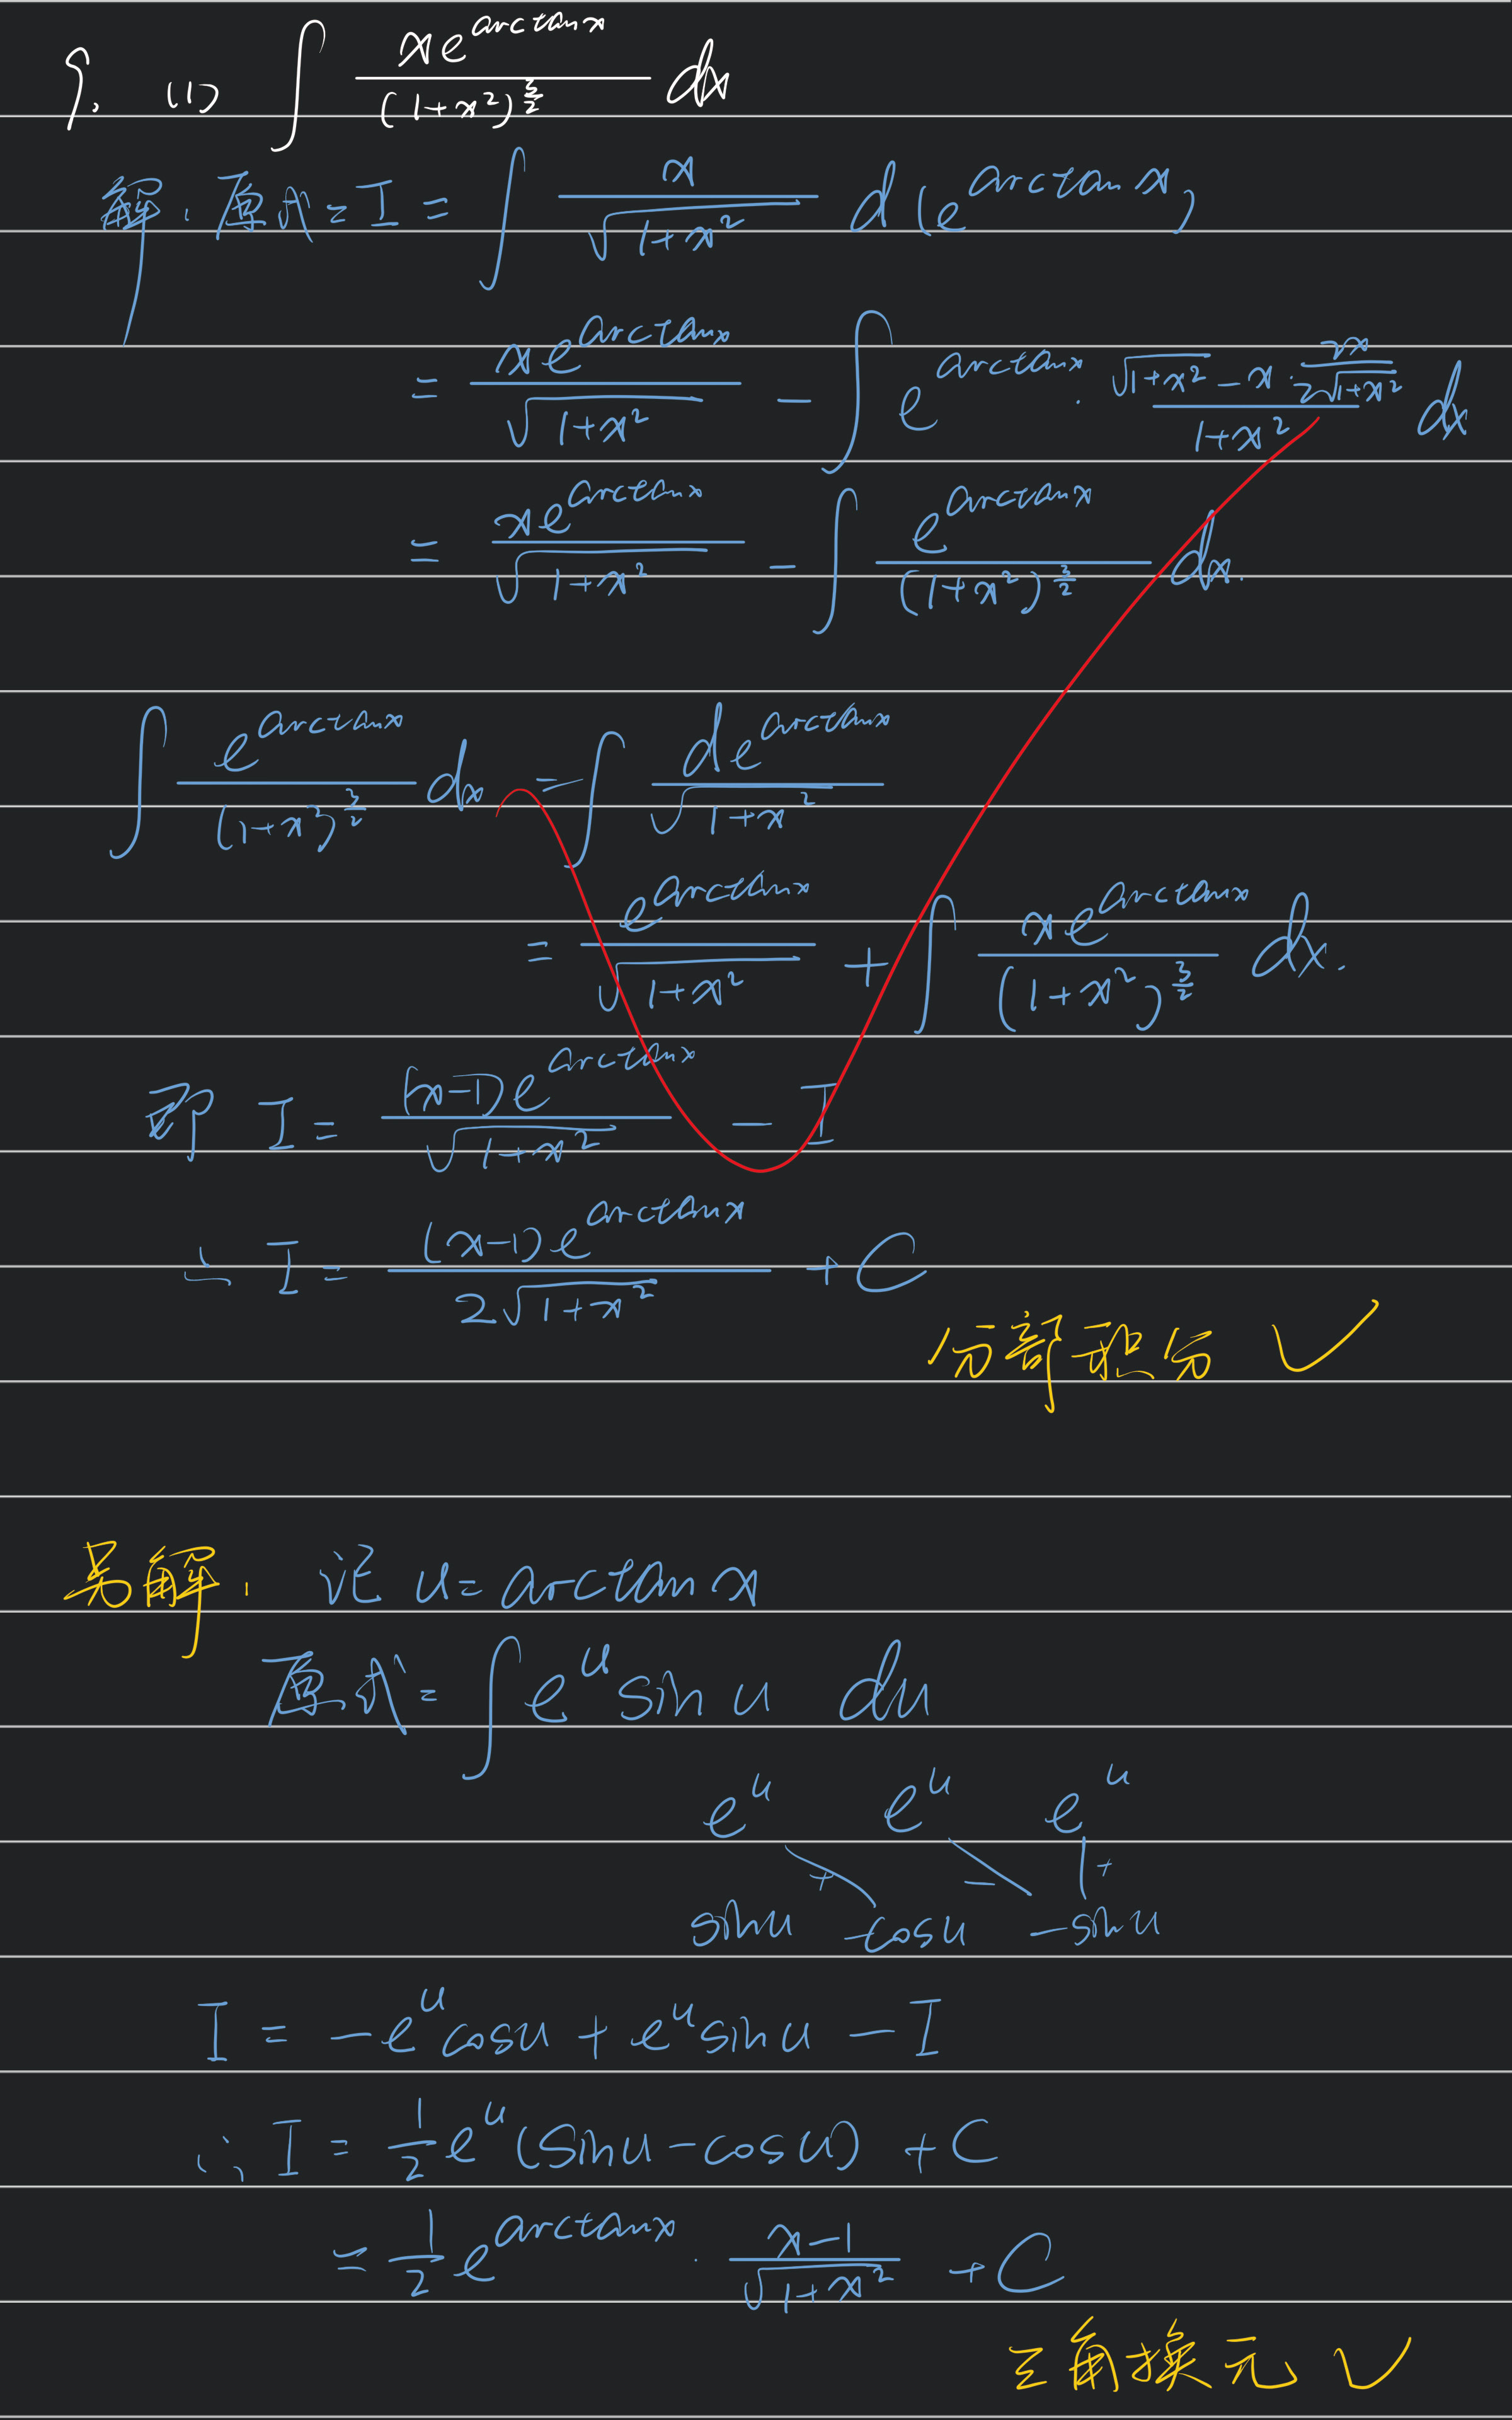 9. (1) ∫ \frac{xe^{arctanx}}{(1+x^2)^{\frac{3}{2}}} dx
解. 原式=I= ∫ \frac{x}{\sqrt{1+x^2}} d(e^{arctanx})
= \frac{xe^{arctanx}}{\sqrt{1+x^2}} - ∫ e^{arctanx} · \frac{\sqrt{1+x^2}-x·\frac{2x}{2\sqrt{1+x^2}}}{1+x^2} dx
= \frac{xe^{arctanx}}{\sqrt{1+x^2}} - ∫ \frac{e^{arctanx}}{(1+x^2)^{\frac{3}{2}}} dx.
∫ \frac{e^{arctanx}}{(1+x^2)^{\frac{3}{2}}} dx = ∫ \frac{de^{arctanx}}{\sqrt{1+x^2}}
= \frac{e^{arctanx}}{\sqrt{1+x^2}} + ∫ \frac{xe^{arctanx}}{(1+x^2)^{\frac{3}{2}}} dx.
即 I= \frac{(x-1)e^{arctanx}}{\sqrt{1+x^2}} - I
∴ I= \frac{(x-1)e^{arctanx}}{2\sqrt{1+x^2}} + C
分部积分 ✓
另解. 记 u=arctanx
原式= ∫ e^u sin u du
e^u e^u e^u
+ - +
sinu -cosu -sinu
I = -e^u cosu + e^u sinu - I
∴ I = \frac{1}{2} e^u (sinu-cosu) + C
= \frac{1}{2} e^{arctanx} · \frac{x-1}{\sqrt{1+x^2}} + C
三角换元 ✓